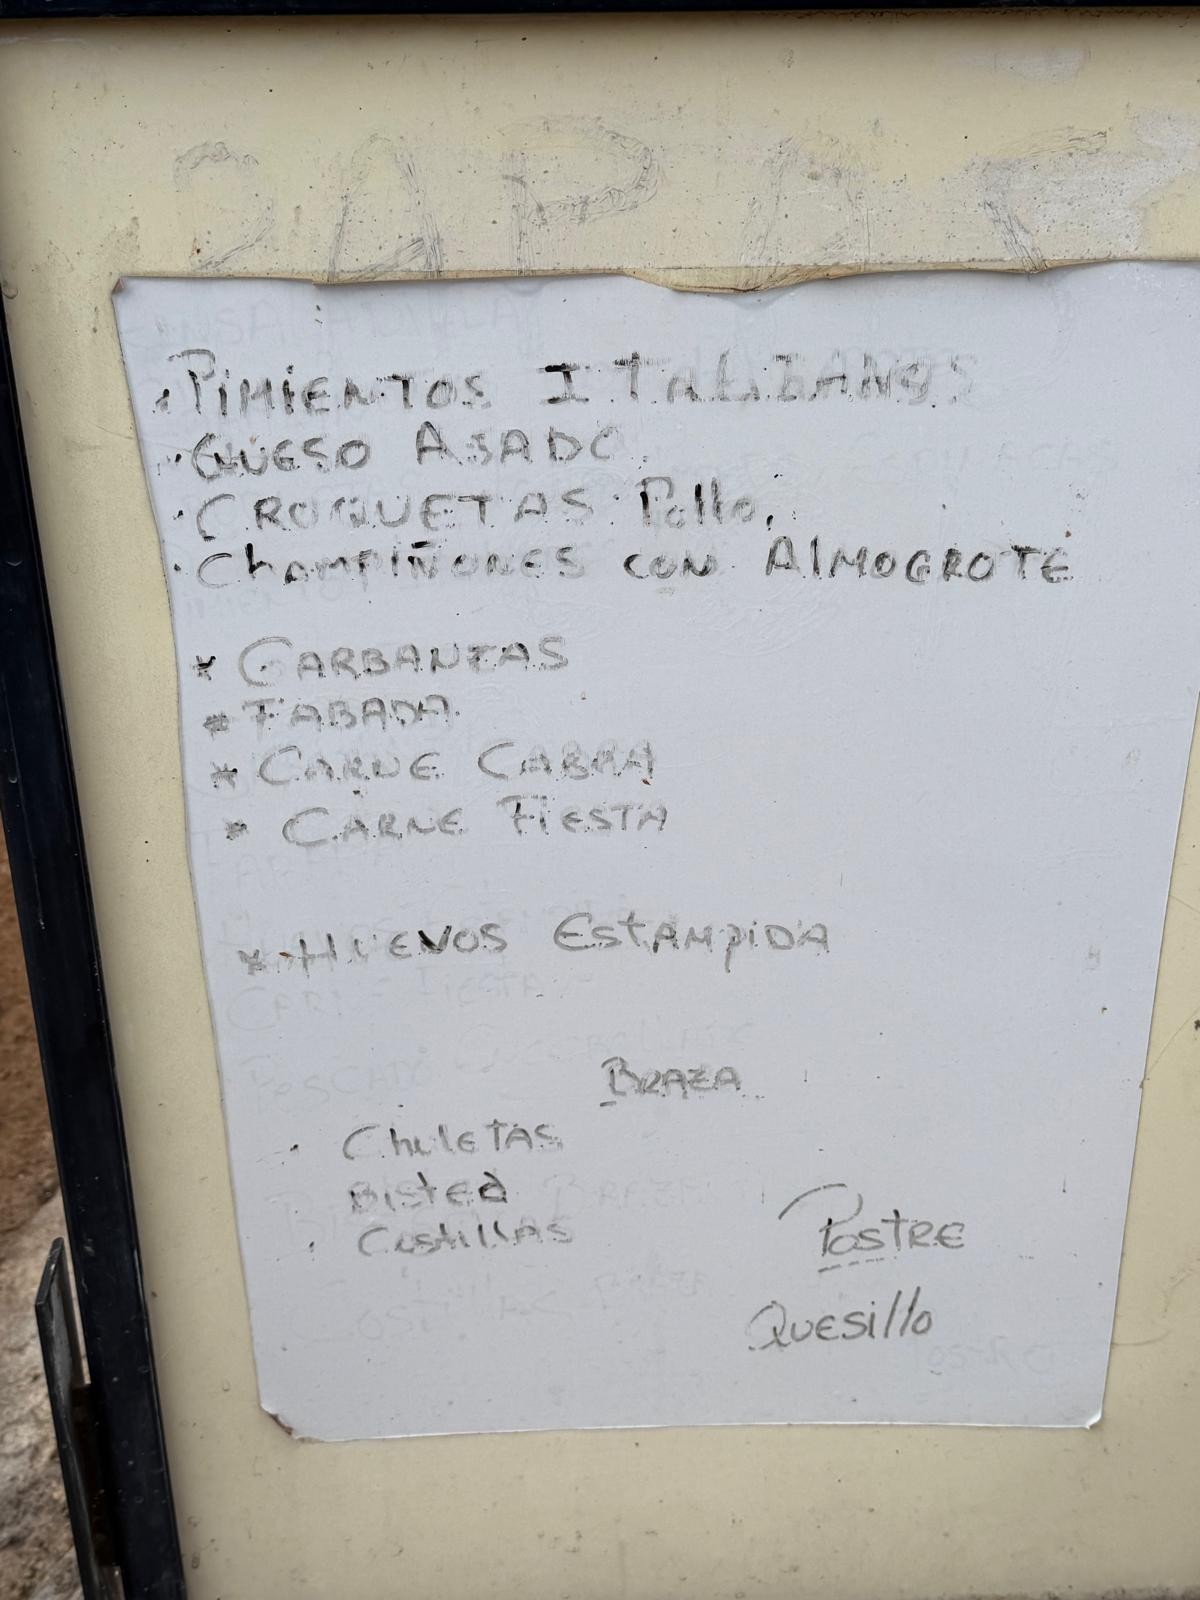 · PIMIENTOS ITALIANOS
· QUESO ASADO.
· CROQUETAS Pollo.
· ChAMPIÑONES CON AlMOGROTE
* GARBANZAS
* FABADA.
* CARNE CABRA
* CARNE FIESTA
* HUEVOS EStAMpiDA
BRAZA
· ChuleTAS
Bisted
· CostillAS
PostRE
Quesillo